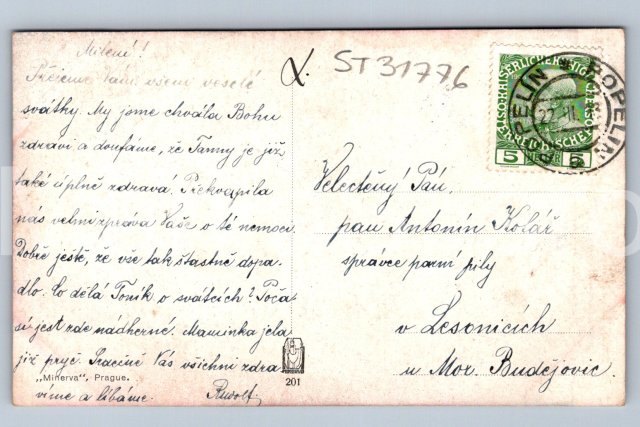 Milení!
Přejeme Vám všem veselé
svátky. My jsme chvála Bohu
zdravi a doufáme, že Fanny je již
také úplně zdravá. Překvapila
nás velmi zpráva Vaše o té nemoci.
Dobře ještě, že vše tak šťastně dopa-
dlo. Co dělá Toník o svátcích? Poča-
sí jest zde nádherné. Maminka jela
již pryč. Srdečně Vás všichni zdra-
víme a líbáme. Rudolf.
„Minerva", Prague.
201
ST31776
POPELIN POPELIN
5 HELLER 5
Velectěný Pán,
pan Antonín Kolář
správce parní pily
v Lesonicích
u Mor. Budějovic.